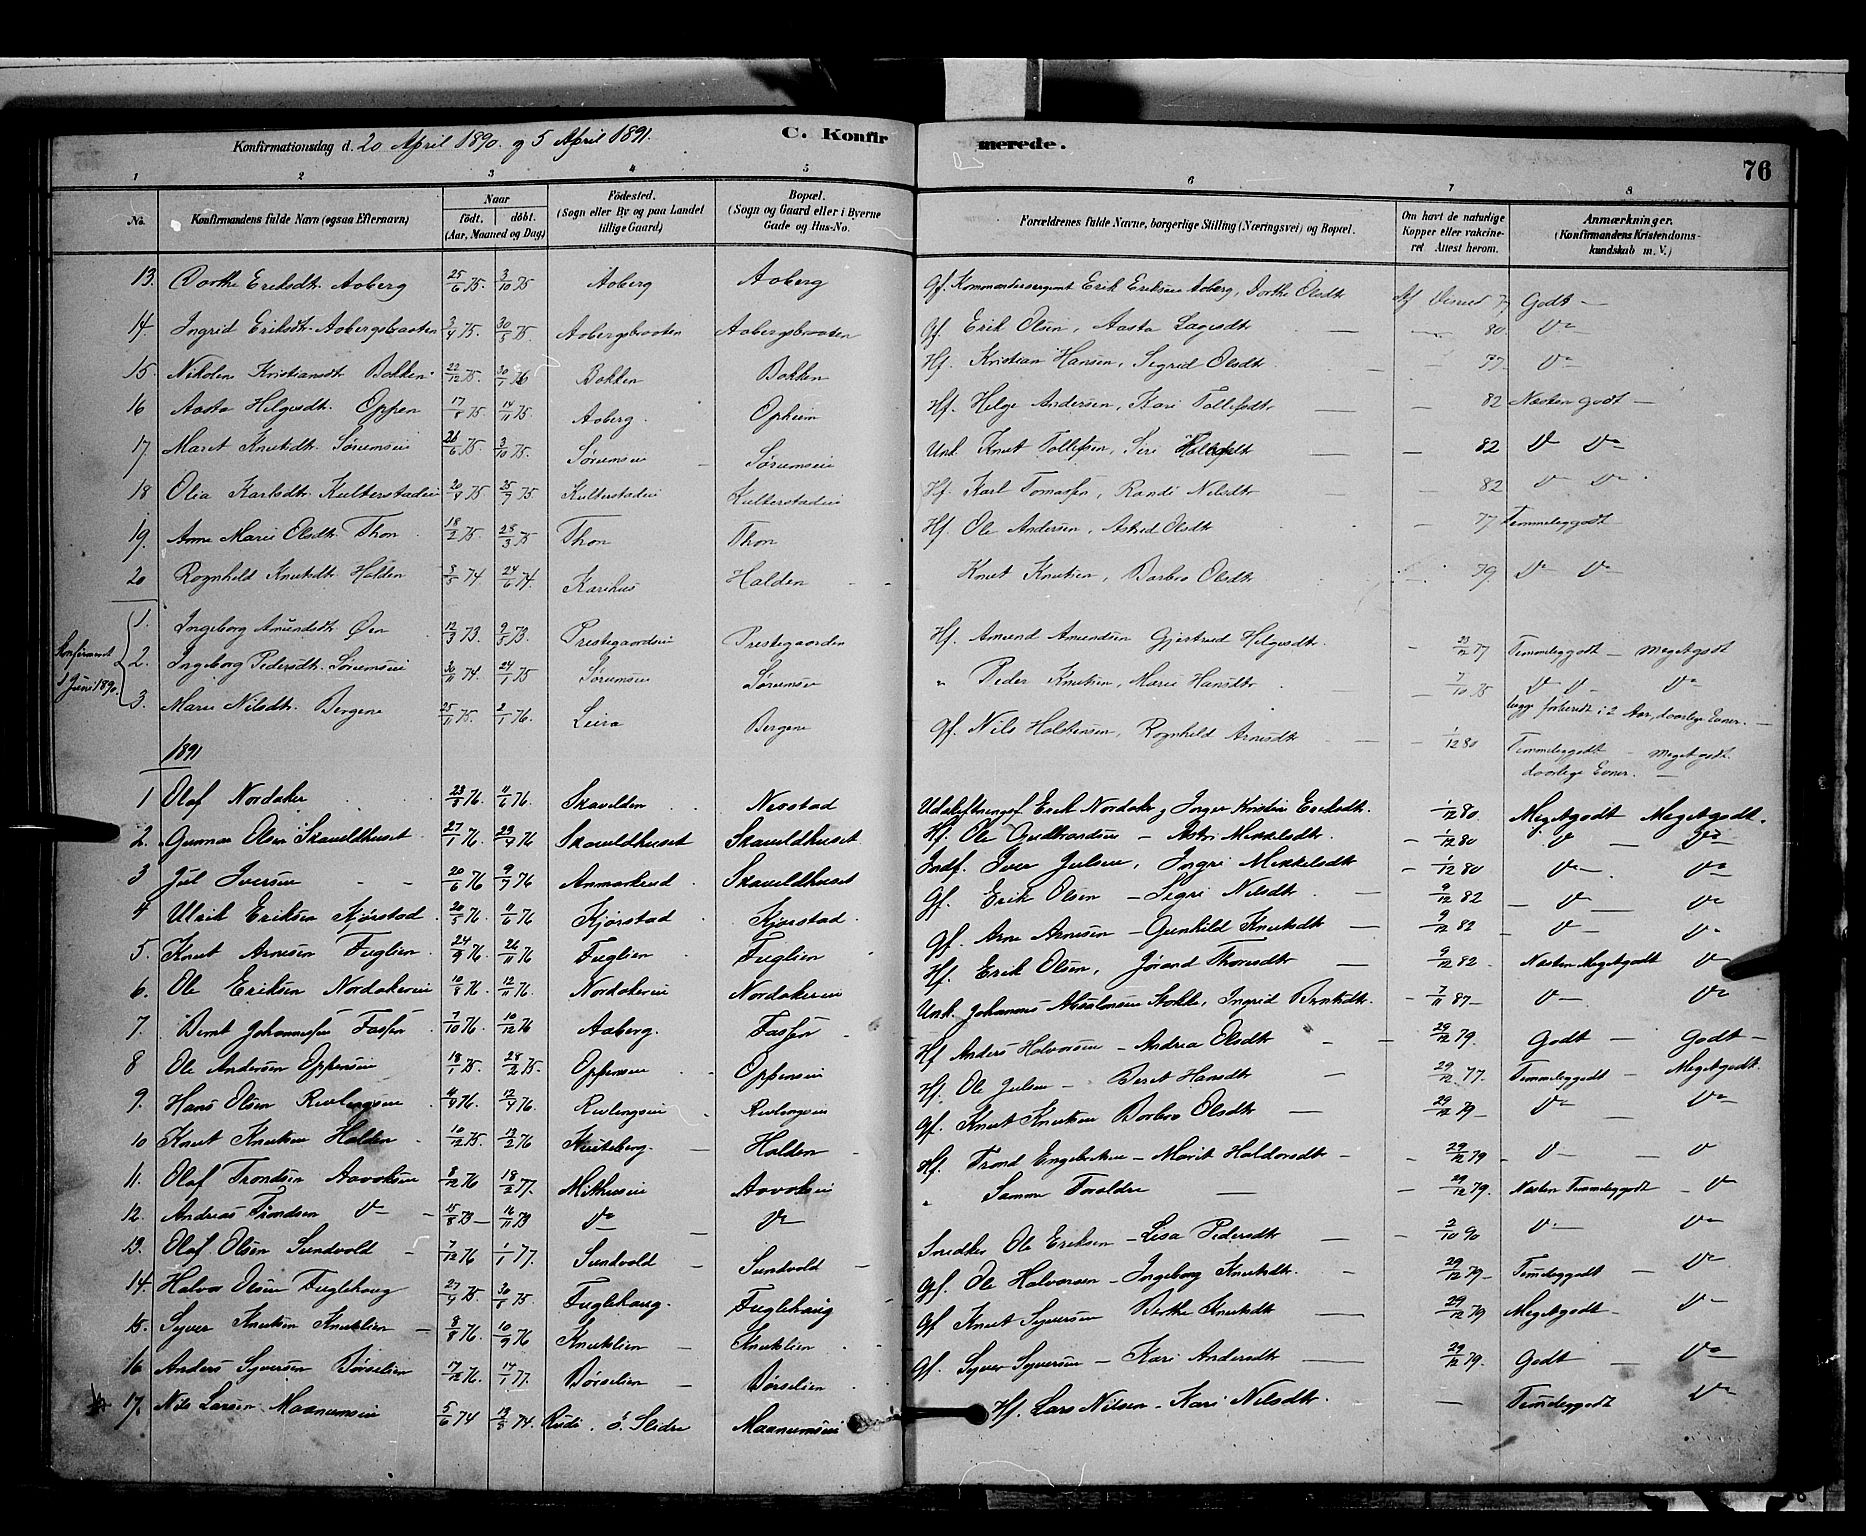 Konfirmationsdag d. 20 April 1890 og 5 April 1891. C. Konfirmerede. 76
1 2 3 4 5 6 7 8
No. Konfirmandens fulde Navn (ogsaa Efternavn) Naar født. døbt. (Aar, Maaned og Dag) Fødested. (Sogn eller By og paa Landet tillige Gaard) Bopæl. (Sogn og Gaard eller i Byerne Gade og Hus-No. Forældrenes fulde Navne, borgerlige Stilling (Næringsvei) og Bopæl. Om havt de naturlige Kopper eller vakcineret Attest herom. Anmærkninger. (Konfirmandens Kristendomskundskab m. V.)
13. Dorthe Eriksdtr. Aaberg 25/6 75. 3/10 75 Aaberg Aaberg Gf. Kommandersergeant Erik Eriksen Aaberg, Dorthe Olsdtr Af Godt —
14. Ingrid Eriksdtr. Aabergsbraaten 3/4 75. 30/5 75. Aabergsbraaten Aabergsbraaten Gf. Erik Olsen, Aasta Lagesdtr — 80 Do
15. Nikoline Kristiansdtr Bakken 22/12 75. 30/1 76 Bakken Bakken Hf. Kristian Hansen, Sigrid Olsdtr — 77. Do
16 Aaste Helgesdtr. Oppen 17/8 75 14/11 75. Aaberg. Opheim Hf. Helge Andersen, Kari Tollefsdtr — 82 Næsten godt —
17. Marit Knutsdtr. Sørumseie 26/6 75. 3/10 75. Sørumseie Sørumseie Unk. Knut Tollefsen, Siri — 82 Do Do
18 Olia Karlsdtr. 20/4 75 25/7 75. Hf. Karl Tomassen, Randi Nilsdtr — 82 Do Do
19. Anne Marie Olsdtr. Thon 18/2 75. 28/3 75 Thon Thon Hf. Ole Andersen, Astrid Olsdtr — 77. Temmeleggodt
20 Rognheld Knutsdtr. Halden 74 24/6 74. Karihus Halden Knut Knutsen, Barbro Olsdtr 79 Do Do
Konfirmeret 1 Juni 1890.
1. Ingeborg Amundsdtr. Øen 12/3 73. 9/5 73. Prestegaardseie Prestegaarden Hf. Amund Amundsen Gjertrud Helgesdtr. 23/12 77 Temmeleggodt — Megetgodt
2. Ingeborg Pedersdtr. Sørumseie 30/11 74. 24/1 75 Sørumseie Sørumseie " Peder Knutsen, Marie Hansdtr. 7/10 75 Do Do Do
begge forberedt i 2 Aar, daarlige Evner. —
3. Marie Nilsdtr. Bergene 25/11 75. 2/1 76. Leira Bergene Gf. Nils Halstensen, Rognheld Arnesdtr — 1/12 80 Temmeleggodt — Megetgodt.
daarlige Evner. —
1891
1 Olaf Nordaker 23/3 76. 11/6 76. Skavelden Nerstad Udskiftningsf. Erik Nordaker og Inger Kristine Eriksdtr. 1/12 80. Megetgodt Megetgodt.
2. Gunnar Olsen Skaveldhuset 27/1 76. 23/4 76 Skaveldhuset Skaveldhuset Hf. Ole Gudbrandsen — Mikkelsdtr. — 1/12 80 Do — Do
3 Jul Iversen — — 20/6 76 9/7 76 Skaveldhuset Indf. Iver Julsen, Ingri Mikkelsdtr — 1/12 80 Do — Do
4 Ulrik Eriksen Kjørstad. 20/5 76. 11/6 76 Kjørstad Kjørstad. Gf. Erik Olsen — Sigri Nilsdtr. — 9/12 82 — Do — Do
5. Knut Arnesen Fuglien 24/9 76. 26/11 76 Fuglien Fuglien Gf. Arne Arnesen — Gunhild Knutsdtr — 9/12 82 — Do — Do
6. Ole Eriksen Nordakereie 10/8 76. 12/11 76. Nordakereie Nordakereie Hf. Erik Olsen, Jørand Thoresdtr — 9/12 82. Næsten Megetgodt Do
7. Bernt Johannessen Fossen 7/10 76. 10/12 76 Aaberg. Fossen Unk. Johannes Absalonsen Stokke, Ingrid Berntsdtr. — 7/11 87 — Do — Do
8 Ole Andersen Oppenseie 18/1 75. 28/2 75. Oppenseie Oppenseie Hf Anders Halvorsen — Andrea Olsdtr — 29/12 79. Godt — Godt —
9. Hans Olsen Revlingseie 4/4 76. 12/4 76. Revlingseie Revlingseie Hf. Ole Julsen — Beret Hansdtr — 29/12 77. Temmeleggodt — Megetgodt.
10 Knut Knutsen Halden 10/12 75. 13/2 76 Halden — Gf. Knut Knutsen Barbro Olsdtr — 29/12 79 — Do — Do
11. Olaf Trondsen 8/12 76 18/2 77. Hf. Trond Engebretsen — Marit Haldorsdtr — 29/12 79 Do — Do
12. Andreas Trondsen Do 15/8 73 — 16/11 73 Do Do " Samme Foraldre — 29/12 79. Næsten Temmeleggodt — Do
13. Olaf Olsen Sundvold — 7/12 76 1/1 77. Sundvold — Sundvold — Snedker Ole Eriksen — Lisa Pedersdtr — 2/10 90 Do — Do
14. Halvor Olsen Fuglehaug 27/4 75. 30/5 75. Fuglehaug. Fuglehaug Gf. Ole Halvorsen — Ingeborg Knutsdtr. — 29/12 79 — Temleggodt — Do
15. Syver Knutsen Knutslien — 8/8 76. 10/9 76 Knutslien — Knutslien — Gf Knut Syversen Berthe Knutsdtr — 29/12 79 Megetgodt — Do
16 Anders Syversen Børselien 17/12 76. 14/1 77. Børselien — Børselien Gf. Syver Syversen — Kari Andersdtr — 29/12 79. Godt — Do
17. Nils Larsen Maanumseie 5/6 74 74. Rudi, ö. Slidre Maanumseie Hf. Lars Nilsen — Kari Nilsdtr. — Temleggodt Do